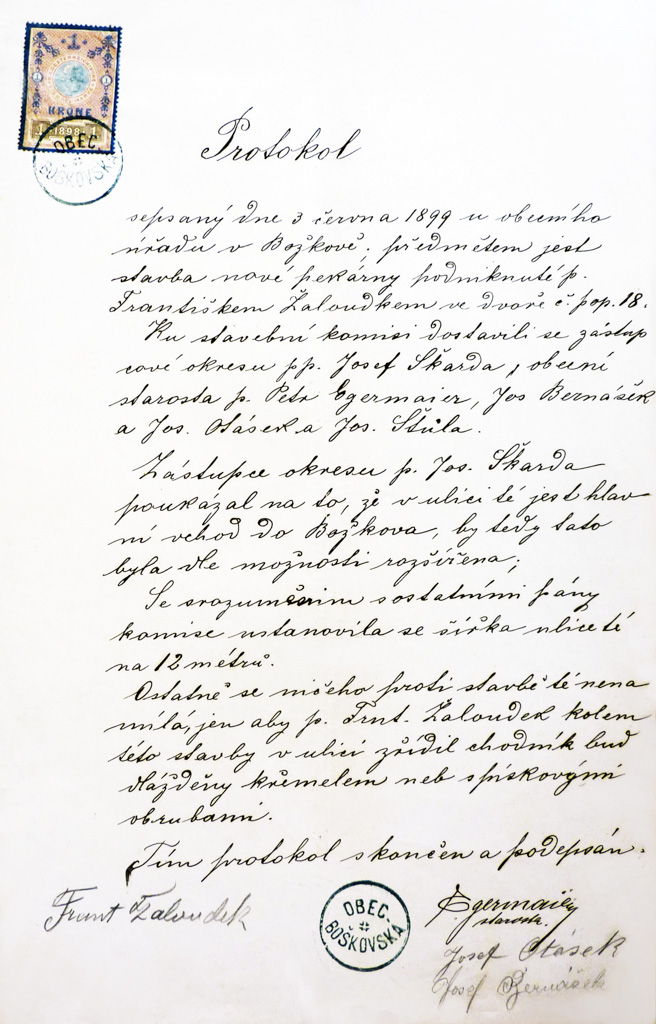 1
KRONE
1 1898 1
OBEC
BOŠKOVSKÁ
Protokol
sepsaný dne 3 června 1899 u obecního
úřadu v Božkově, předmětem jest
stavba nové pekárny podniknuté p.
Františkem Žaloudkem ve dvoře č. pop. 18.
Ku stavební komisi dostavili se zástup
cové okresu pp. Josef Škarda, obecní
starosta p. Petr Egermaier, Jos Bernášek
a Jos. Otásek a Jos. Štůla.
Zástupce okresu p. Jos. Škarda
poukázal na to, že v ulici té jest hlav
ní vchod do Božkova, by tedy tato
byla dle možnosti rozšířena;
Se srozuměním s ostatními pány
komise ustanovila se šířka ulice té
na 12 métrů.
Ostatně se ničeho proti stavbě té nena
mílá, jen aby p. Frnt. Žaloudek kolem
této stavby v ulici zřídil chodník buď
dlážděny křemelem neb s pískovými
obrubami.
Tím protokol skončen a podepsán.
Frunt Žaloudek
OBEC.
BOŠKOVSKÁ
PEgermaier
starosta.
Josef Otásek
Josef Bernášek